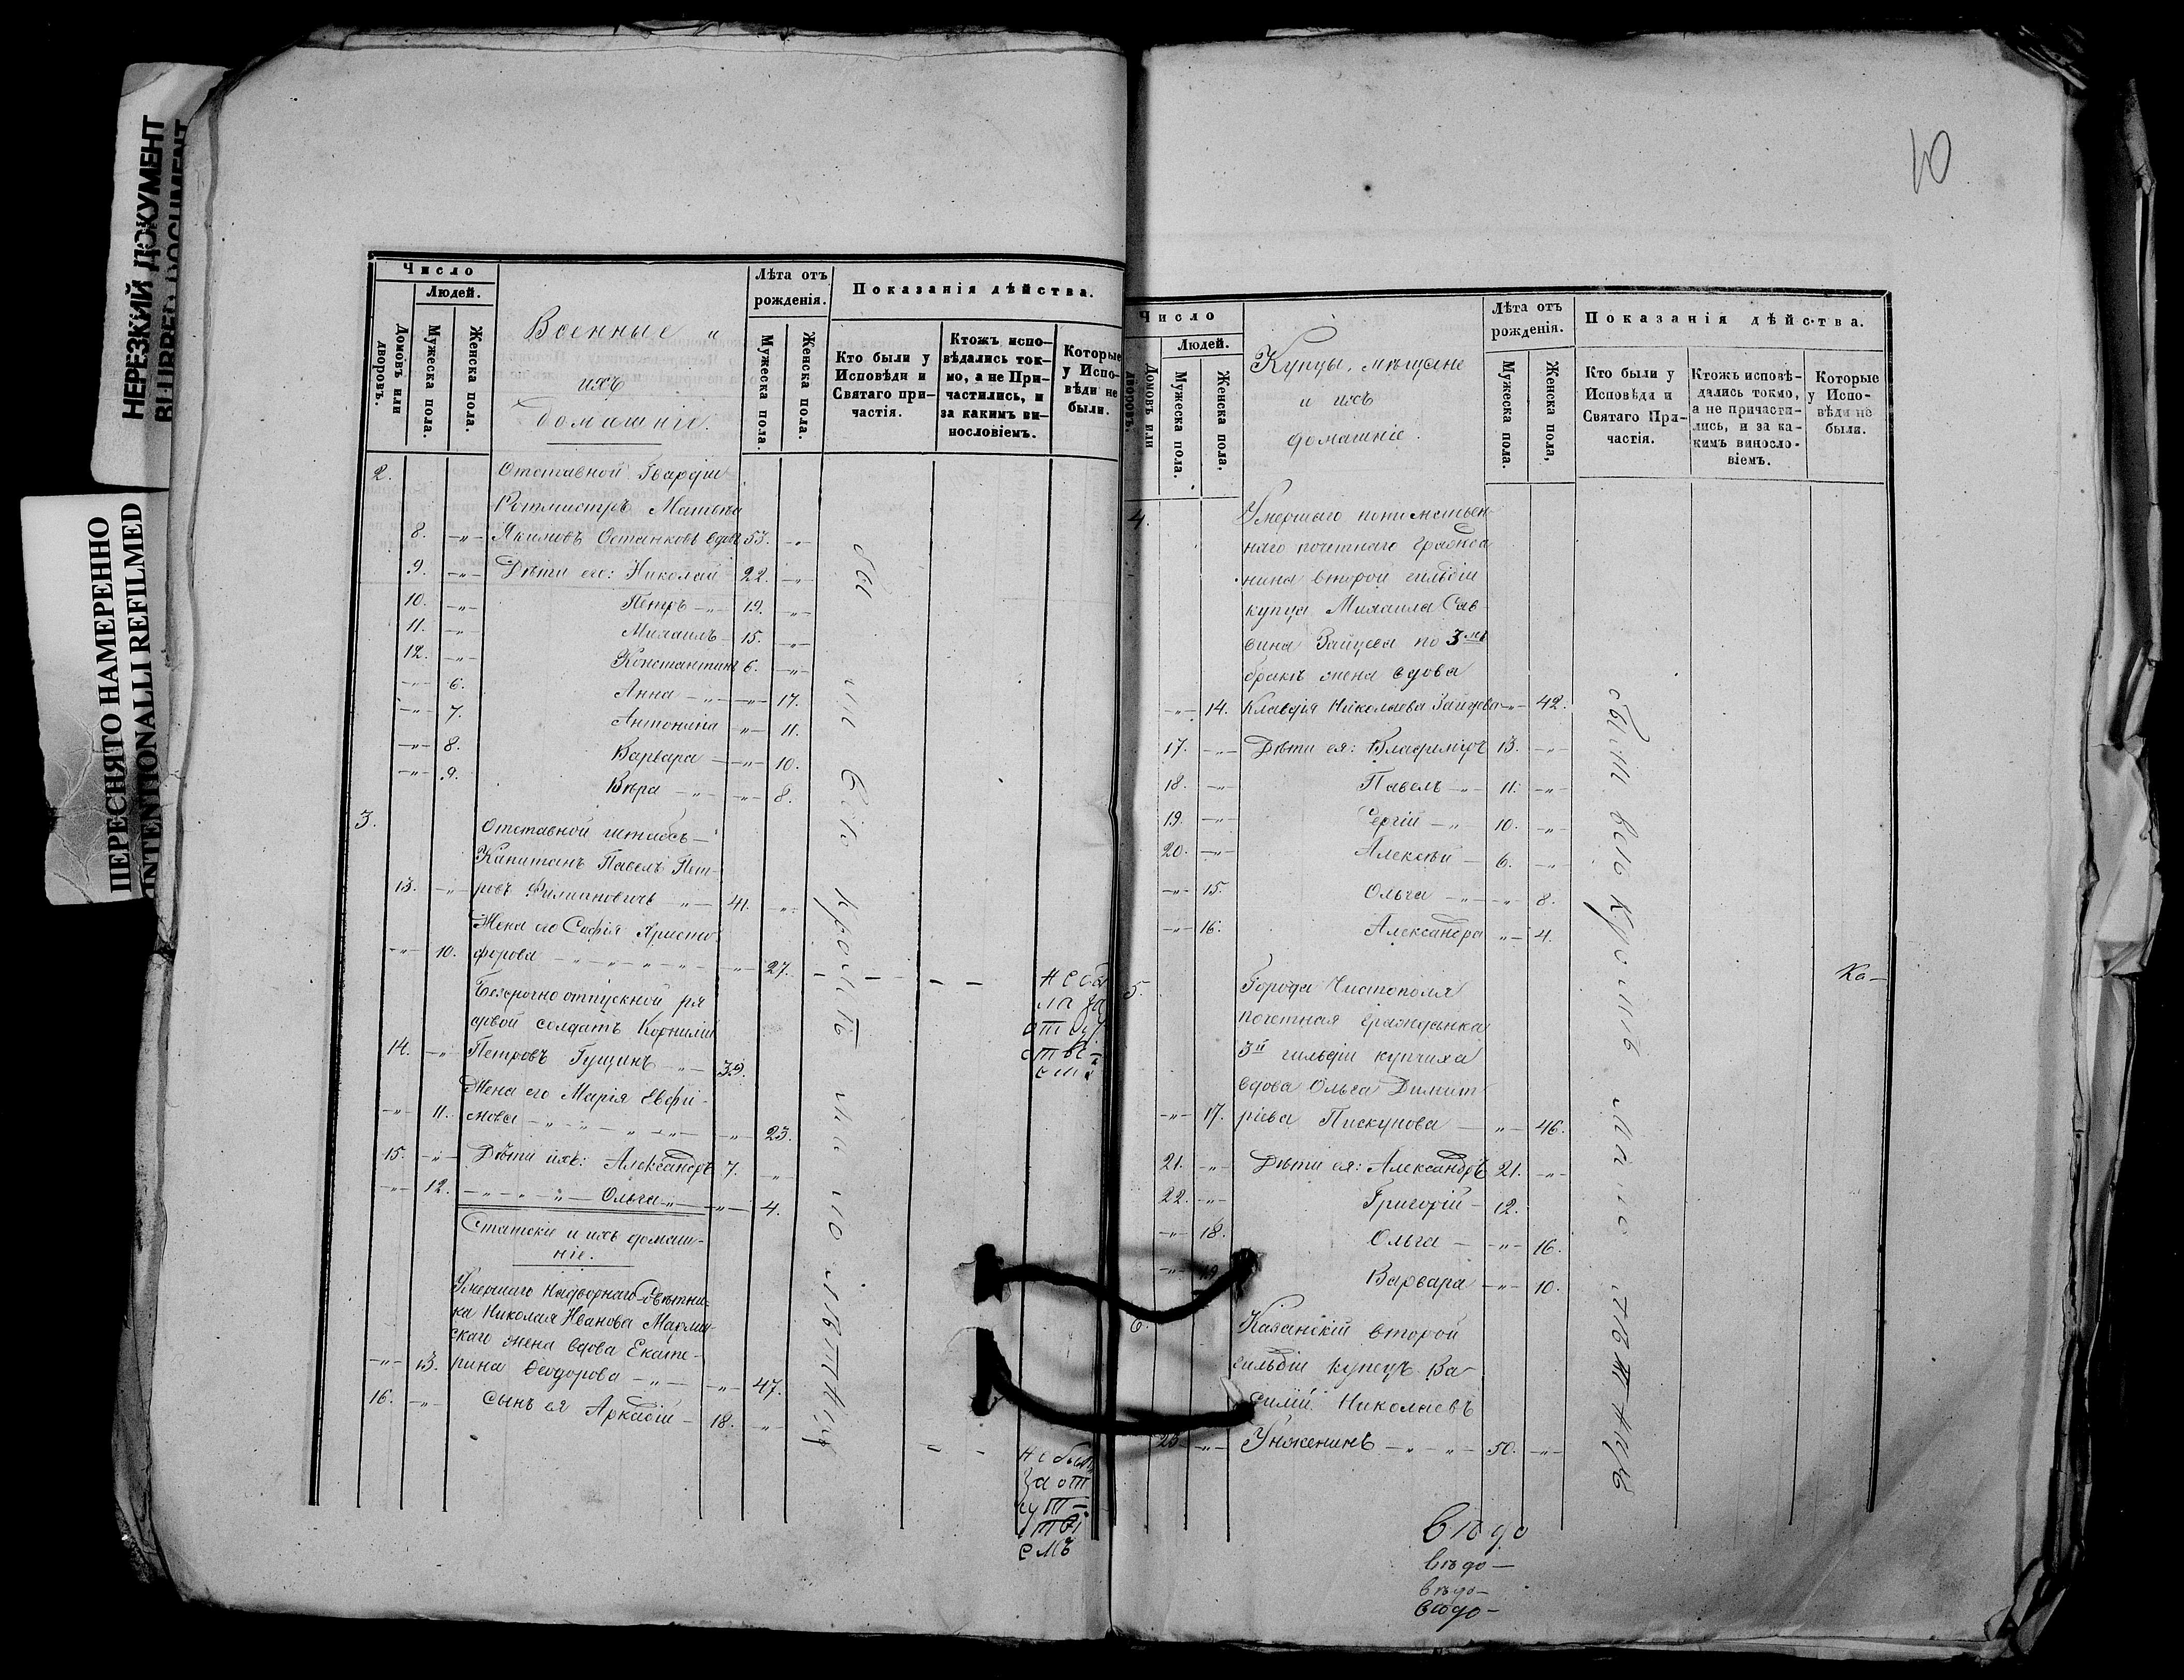 НЕРЕЗКИЙ ДОКУМЕНТ
BLURRED DOCUMENT
ПЕРЕСНЯТО НАМЕРЕННО
INTENTIONALLI REFILMED
Число
Людей.
Домовъ или дворовъ.
Мужеска пола.
Женска пола.
Военные и
ихъ
домашніе.
Лѣта отъ
рожденія.
Мужеска пола.
Женска пола.
Показанія дѣйства.
Кто были у
Исповѣди и
Святаго при-
частія.
Ктожъ испо-
вѣдались ток-
мо, а не При-
частились, и
за какимъ ви-
нословіемъ.
Которые
у Испо-
вѣди не
были.
2. Отставной Гвардіи
Ротмистръ
8. -„- Якимовъ Останковъ вдовъ 53. -„-
9. -„- Дѣти его: Николай 22. -„-
10. -„- Петръ -„- 19. -„-
11. -„- Михаилъ 15. -„-
12. -„- Константинъ 6. -„-
-„- 6. Анна -„- -„- 17.
-„- 7. Антонина -„- 11.
-„- 8. Варвара -„- 10.
-„- 9. Вѣра -„- -„- 8.
3. Отставной штабсъ-
Капитанъ Павелъ Пет-
13. -„- ровъ Филипповичъ -„- 41. -„-
Жена его Софія Христо-
-„- 10. форова -„- 27.
не бы
ла за
отсут
стві-
ем.
Безсрочноотпускной ря
довой солдатъ Корнилій
14. -„- Петровъ Гущинъ -„- 39.
Жена его Марія Евфи-
-„- 11. мова -„- 23.
15. -„- Дѣти ихъ: Александръ 7. -„-
-„- 12. -„- Ольга -„- 4.
Статскіе и ихъ домаш-
ніе.
Умершаго Надворнаго Совѣтни-
ка Николая Иванова
скаго жена вдова Екате-
-„- 13. рина Ѳеодорова -„- 47.
16. -„- Сынъ ея Аркадій - 18. -„-
не былъ
за от
сут-
стві
емъ
10
Число
Людей.
Домовъ или дворовъ.
Мужеска пола.
Женска пола.
Купцы, мѣщане
и ихъ
домашніе.
Лѣта отъ
рожденія.
Мужеска пола.
Женска пола,
Показанія дѣйства.
Кто были у
Исповѣди и
Святаго При-
частія.
Ктожъ исповѣ-
дались токмо,
а не причасти-
лись, и за ка-
кимъ виносло-
віемъ.
Которые
у Испо-
вѣди не
были.
4. Умершаго потомствен-
наго почетнаго гражда
нина второй гильдіи
купца Михаила Сав-
вина Зайцева по 3мъ
бракѣ жена вдова
-„- 14. Клавдія Николаева Зайцева -„- 42.
17. -„- Дѣти ея: Владиміръ 13. -„-
18. -„- Павелъ -„- 11. -„-
19. -„- Сергій -„- 10. -„-
20. -„- Алексѣй - 6. -„-
-„- 15. Ольга -„- 8.
-„- 16. Александра -„- 4.
5. Города Чистополя
почетная гражданка
3й гильдіи купчиха
вдова Ольга Димит
-„- 17. ріева Пискунова -„- 46.
21. -„- Дѣти ея: Александръ 21. -„-
22. -„- Григорій - 12.
-„- 18. Ольга - -„- 16.
-„- 19. Варвара -„- 10.
6. Казанскій второй
гильдіи купецъ Ва-
силій Николаевъ
23. -„- Унженинъ -„- 50. -„-
Ко-
вѣдо
вѣдо-
вѣдо-
вѣдо-